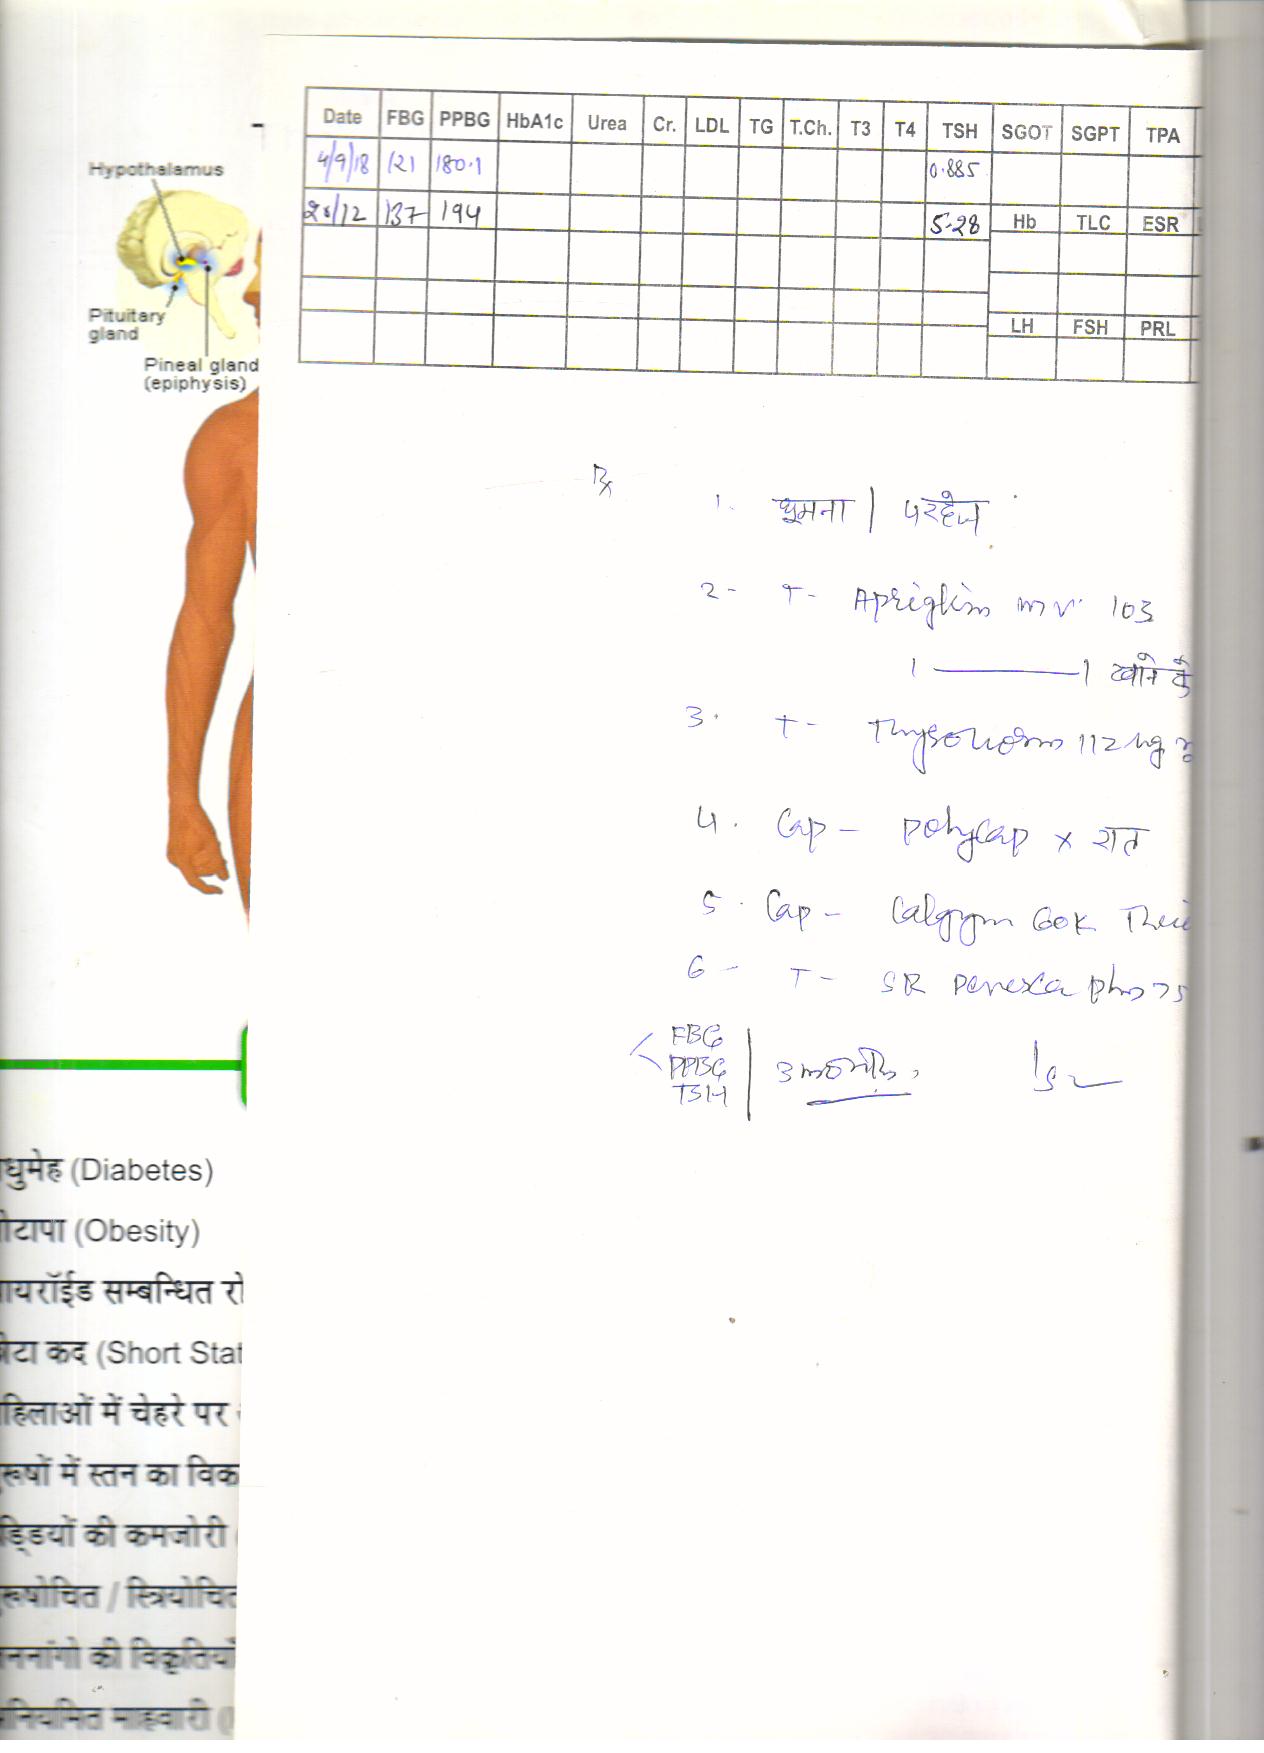 Hypothalamus
Pituitary
gland
Pineal gland
(epiphysis)
Date FBG PPBG HbA1c Urea Cr. LDL TG T.Ch. T3 T4 TSH SGOT SGPT TPA
4/9/18 121 180.1 0.885
137 194 5.28 Hb TLC ESR
LH FSH PRL
Rx
1. घूमना | परहेज
2- T- Apriglim mv 103
1 1 खाने के
3. T- Thyronorm 112 µg
4. Cap- polycap x रात
5. Cap- 60K
6- T- SR
FBG
PPBG
TSH
3 months
धुमेह (Diabetes)
ोटापा (Obesity)
ायरॉईड सम्बन्धित रो
ोटा कद (Short Stat
हिलाओं में चेहरे पर
रूषों में स्तन का विक
ड्डियों की कमजोरी
रूषोचित / स्त्रियोचित
ननांगो की विकृतियाँ
नियमित माहवारी (